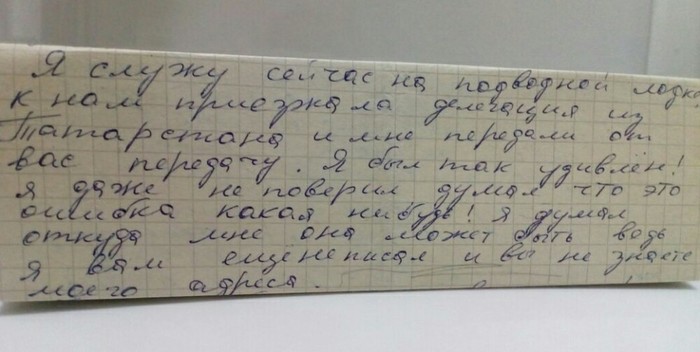 Я служу сейчас на подводной лодке
к нам приезжала делегация из
Татарстана и мне передали от
вас передачу. Я был так удивлён!
я даже не поверил думал что это
ошибка какая нибудь! Я думал
откуда мне она может быть ведь
я вам ещё не писал и вы не знаете
моего адреса.